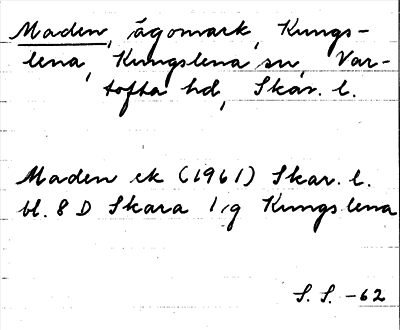 Maden, ägomark, Kungs-
lena, Kungslena sn, Var-
tofta hd, Skar. l.
Maden ek (1961) Skar. l.
bl. 8 D Skara 1,g Kungslena
S. S. -62